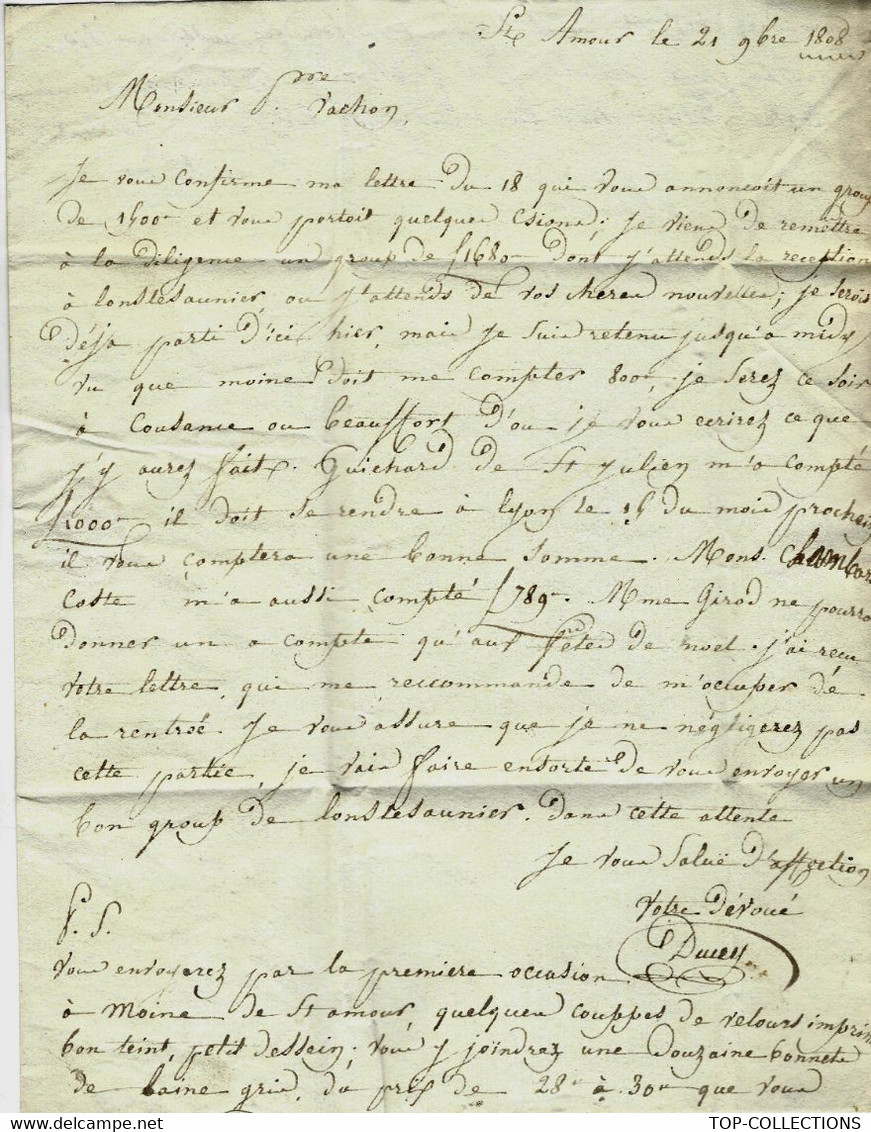 St Amour le 21 9bre 1808
Monsieur Pre Vachon,
Je vous confirme ma lettre du 18 qui vous annoncoit un group
de 1500# et vous portoit quelques ; je viens de remettre
à la diligence un group de £1680# dont j'attends la reception
à lonslesaunier, ou j'attends de vos cheres nouvelles; je serois
déja parti d'ici hier, mais je suis retenu jusqu'a midy
vu que moine doit me compter 800#, je serez ce soir
à Cousance ou beauffort d'ou je vous ecrirez ce que
j'y aurez fait. Guichard de St julien m'a compté
£1000# il doit se rendre à lyon le 15 du mois prochein
il vous comptera une bonne somme. Mons.
Coste m'a aussi compté £789#. Mme Girod ne pourra
donner un a compte qu'aux fetes de noel. j'ai recu
votre lettre, qui me reccommande de m'occuper dé
la rentreé. Je vous assure que je ne négligerez pas
cette partie, je vais faire ensorte de vous envoyer un
bon group de lonslesaunier. dans cette attente
Je vous Saluë d'affection
Votre dévoué
Ducey
P. S.
Vous envoyerez par la premiere occasion
à Moine de St amour, quelques couppes de velours imprim
bon teint, petit dessein; vous y joindrez une douzaine bonnets
de laine gris, du prix de 28# à 30# que vous
TOP-COLLECTIONS